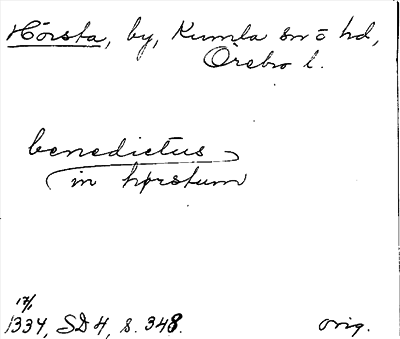 Hörsta, by, Kumla sn o hd,
Örebro l.
benedictus
in hørstum
17/1
1334, SD 4, s. 348.
orig.